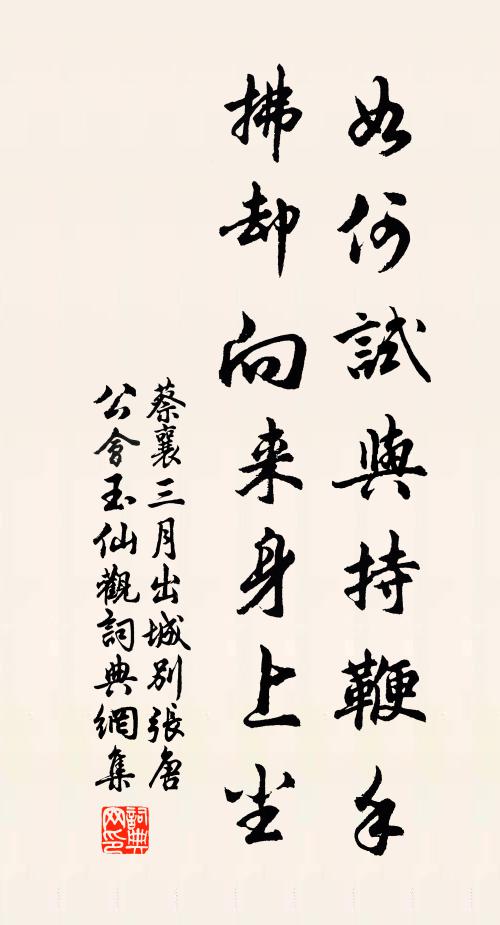 如何試與持鞭手
拂却向来身上尘
蔡襄三月出城别張唐
公會玉仙觀詞典網集
詞典
网印